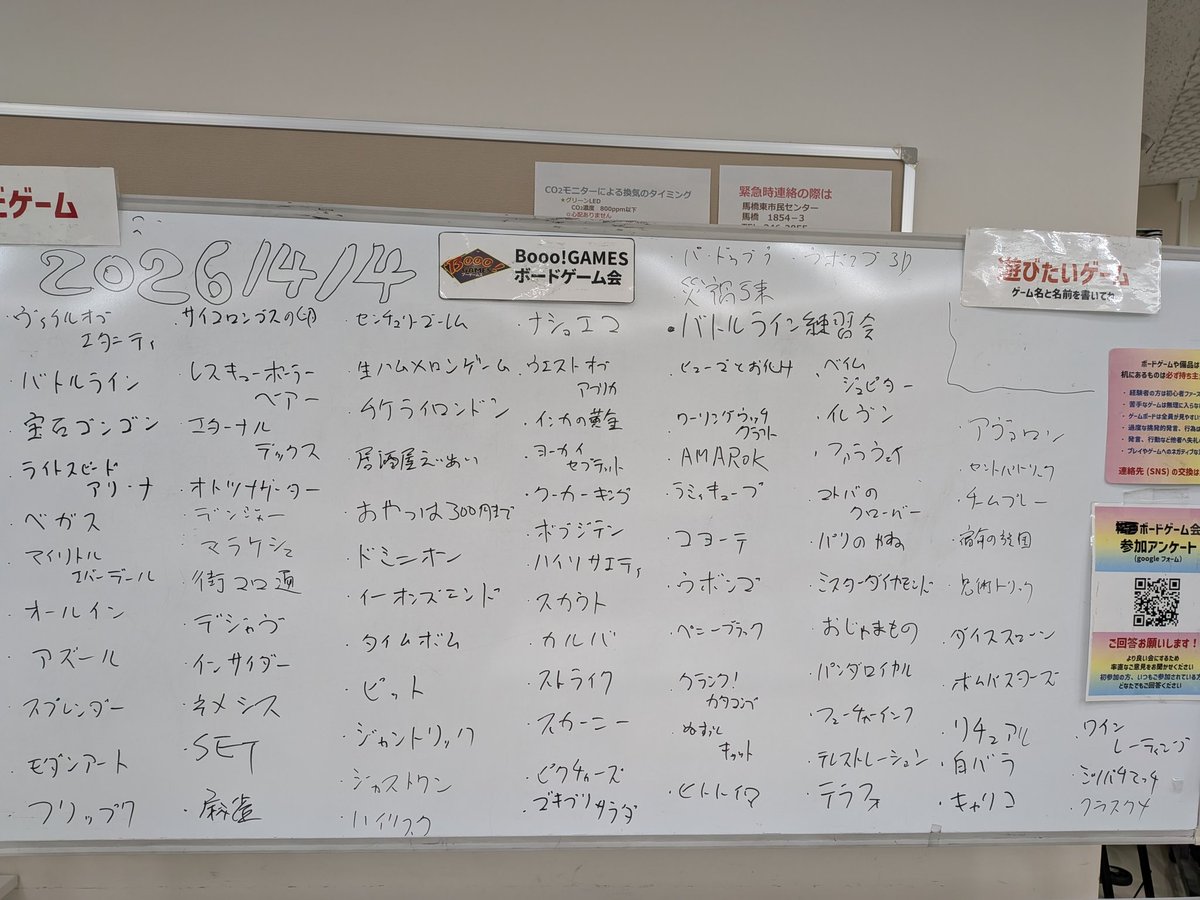 ゲーム
CO2モニターによる換気のタイミング
★グリーンLED
CO2濃度 800ppm以下
☆心配ありません
緊急時連絡の際は
馬橋東市民センター
馬橋 1854-3
2026/4/4
Booo!GAMES
ボードゲーム会
遊びたいゲーム
ゲーム名と名前を書いてね
・ヴェイルオブ
エタニティ
・バトルライン
・宝石ゴンゴン
・ライトスピード
アリーナ
・ベガス
・マイリトル
エバーデール
・オールイン
・アズール
・スプレンダー
・モダンアート
・フリップ7
・サイコロンブスの卵
・レスキューポーラー
ベアー
・エターナル
デックス
・オトッナゲーター
・デンジャー
・マラケシュ
・街コロ通
・デジャヴ
・インサイダー
・ネメシス
・SET
・麻雀
・センチュリーゴーレム
・生ハムメロンゲーム
・ムケライロンドン
・居酒屋えいあい
・おやつは300円まで
・ドミニオン
・イーオンズエンド
・タイムボム
・ピット
・ジャントリック
・ジャストワン
・ハイリスク
・ナショエコ
・ウエストオブ
アフリカ
・インカの黄金
・ヨーカイ
セプテット
・クーカーキング
・ボブジテン
・ハイソサエティ
・スカウト
・カルバ
・ストライク
・スカーニー
・ピクチャーズ
・ゴキブリサラダ
・ウボンゴ3D
・バトルライン練習会
・ワーリングウィッチ
クラフト
・AMAROK
・ラミィキューブ
・コヨーテ
・ウボンゴ
・ペニーブラック
・クランク!
カタコンブ
・ぬすっと
キャット
・ヒトトイマ
・ベイム
ジュピター
・イレブン
・ファラウェイ
・コトバの
クローバー
・ミスターダイヤモンド
・おじゃまもの
・パンダロイヤル
・フューチャーインク
・テレストレーション
・テラフォ
・アヴァロン
・セントパトリック
・チームプレー
・忍術トリック
・ダイススローン
・ボムバスターズ
・リチュアル
・白バラ
・キャリコ
・ワイン
レーティング
・ミツバチマッチ
・クラスク4
ボードゲームや備品は
机にあるものは必ず持ち主
・経験者の方は初心者ファース
・苦手なゲームは無理に入らな
・ゲームボードは全員が見やすい
・過度な挑発的発言、行為は
・発言、行動など他者へ失礼
・プレイやゲームへのネガティブな
連絡先(SNS)の交換は
ボードゲーム会
参加アンケート
(googleフォーム)
ご回答お願いします!
より良い会にするため
率直なご意見をお聞かせください
初参加の方、いつもご参加されている方
どなたでもご回答ください